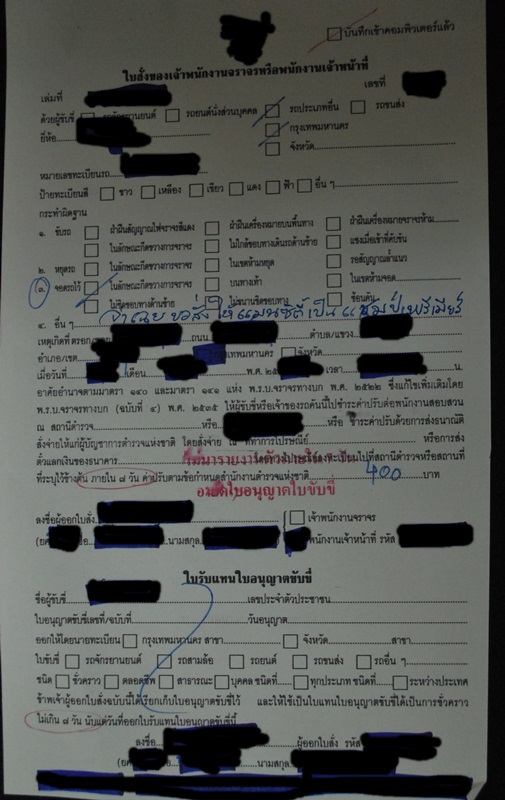 บันทึกเข้าคอมพิวเตอร์แล้ว
ใบสั่งของเจ้าพนักงานจราจรหรือพนักงานเจ้าหน้าที่
เล่มที่ เลขที่
ด้วยผู้ขับขี่ รถยนต์นั่งส่วนบุคคล รถประเภทอื่น รถขนส่ง
ยี่ห้อ กรุงเทพมหานคร
จังหวัด
หมายเลขทะเบียนรถ
ป้ายทะเบียนสี ขาว เหลือง เขียว แดง ฟ้า อื่น ๆ
กระทำผิดฐาน
๑. ขับรถ ฝ่าฝืนสัญญาณไฟจราจรสีแดง ฝ่าฝืนเครื่องหมายบนพื้นทาง ฝ่าฝืนเครื่องหมายจราจรห้าม
ในลักษณะกีดขวางการจราจร ไม่ใกล้ขอบทางเดินรถด้านซ้าย แซงเมื่อเข้าที่คับขัน
๒. หยุดรถ ในลักษณะกีดขวางการจราจร ในเขตห้ามหยุด รอสัญญาณล้ำแนว
๓. จอดรถไว้ ในลักษณะกีดขวางการจราจร บนทางเท้า ในเขตห้ามจอด
ไม่ชิดขอบทางด้านซ้าย ไม่ขนานชิดขอบทาง ซ้อนคัน
๔. อื่น ๆ จำเลย ขอสั่ง ให้ แมนซิตี้ เป็น แชมป์ พรีเมียร์
เหตุเกิดที่ ตรอก ถนน ตำบล/แขวง
อำเภอ/เขต กรุงเทพมหานคร จังหวัด
เมื่อวันที่ เดือน พ.ศ. ๒๕ เวลา น.
อาศัยอำนาจตามมาตรา ๑๔๐ และมาตรา ๑๔๑ แห่ง พ.ร.บ.จราจรทางบก พ.ศ. ๒๕๒๒ ซึ่งแก้ไขเพิ่มเติมโดย
พ.ร.บ.จราจรทางบก (ฉบับที่ ๔) พ.ศ. ๒๕๓๕ ให้ผู้ขับขี่หรือเจ้าของรถคันนี้ไปชำระค่าปรับต่อพนักงานสอบสวน
ณ สถานีตำรวจ หรือ หรือ ชำระค่าปรับด้วยการส่งธนาณัติ
สั่งจ่ายให้แก่ผู้บัญชาการตำรวจแห่งชาติ โดยสั่งจ่าย ณ ที่ทำการไปรษณีย์ หรือการส่ง
ตั๋วแลกเงินของธนาคาร ไปที่สถานีตำรวจหรือสถานที่
ไม่มารายงานตัวภายใน
ที่ระบุไว้ข้างต้น ภายใน ๗ วัน ค่าปรับตามข้อกำหนดสำนักงานตำรวจแห่งชาติ 400 บาท
อายัดใบอนุญาตใบขับขี่
ลงชื่อผู้ออกใบสั่ง เจ้าพนักงานจราจร
นามสกุล พนักงานเจ้าหน้าที่ รหัส
ใบรับแทนใบอนุญาตขับขี่
ชื่อผู้ขับขี่ เลขประจำตัวประชาชน
ใบอนุญาตขับขี่เลขที่/ฉบับที่ วันอนุญาต
ออกให้โดยนายทะเบียน กรุงเทพมหานคร สาขา จังหวัด สาขา
ใบขับขี่ รถจักรยานยนต์ รถสามล้อ รถยนต์ รถขนส่ง รถอื่น ๆ
ชนิด ชั่วคราว ตลอดชีพ สาธารณะ บุคคล ชนิดที่ ทุกประเภท ชนิดที่ ระหว่างประเทศ
ข้าพเจ้าผู้ออกใบสั่งฉบับนี้ได้เรียกเก็บใบอนุญาตขับขี่ไว้ และให้ใช้เป็นใบแทนใบอนุญาตขับขี่ได้เป็นการชั่วคราว
ไม่เกิน ๗ วัน นับแต่วันที่ออกใบรับแทนใบอนุญาตขับขี่นี้
ลงชื่อ ผู้ออกใบสั่ง รหัส
นามสกุล